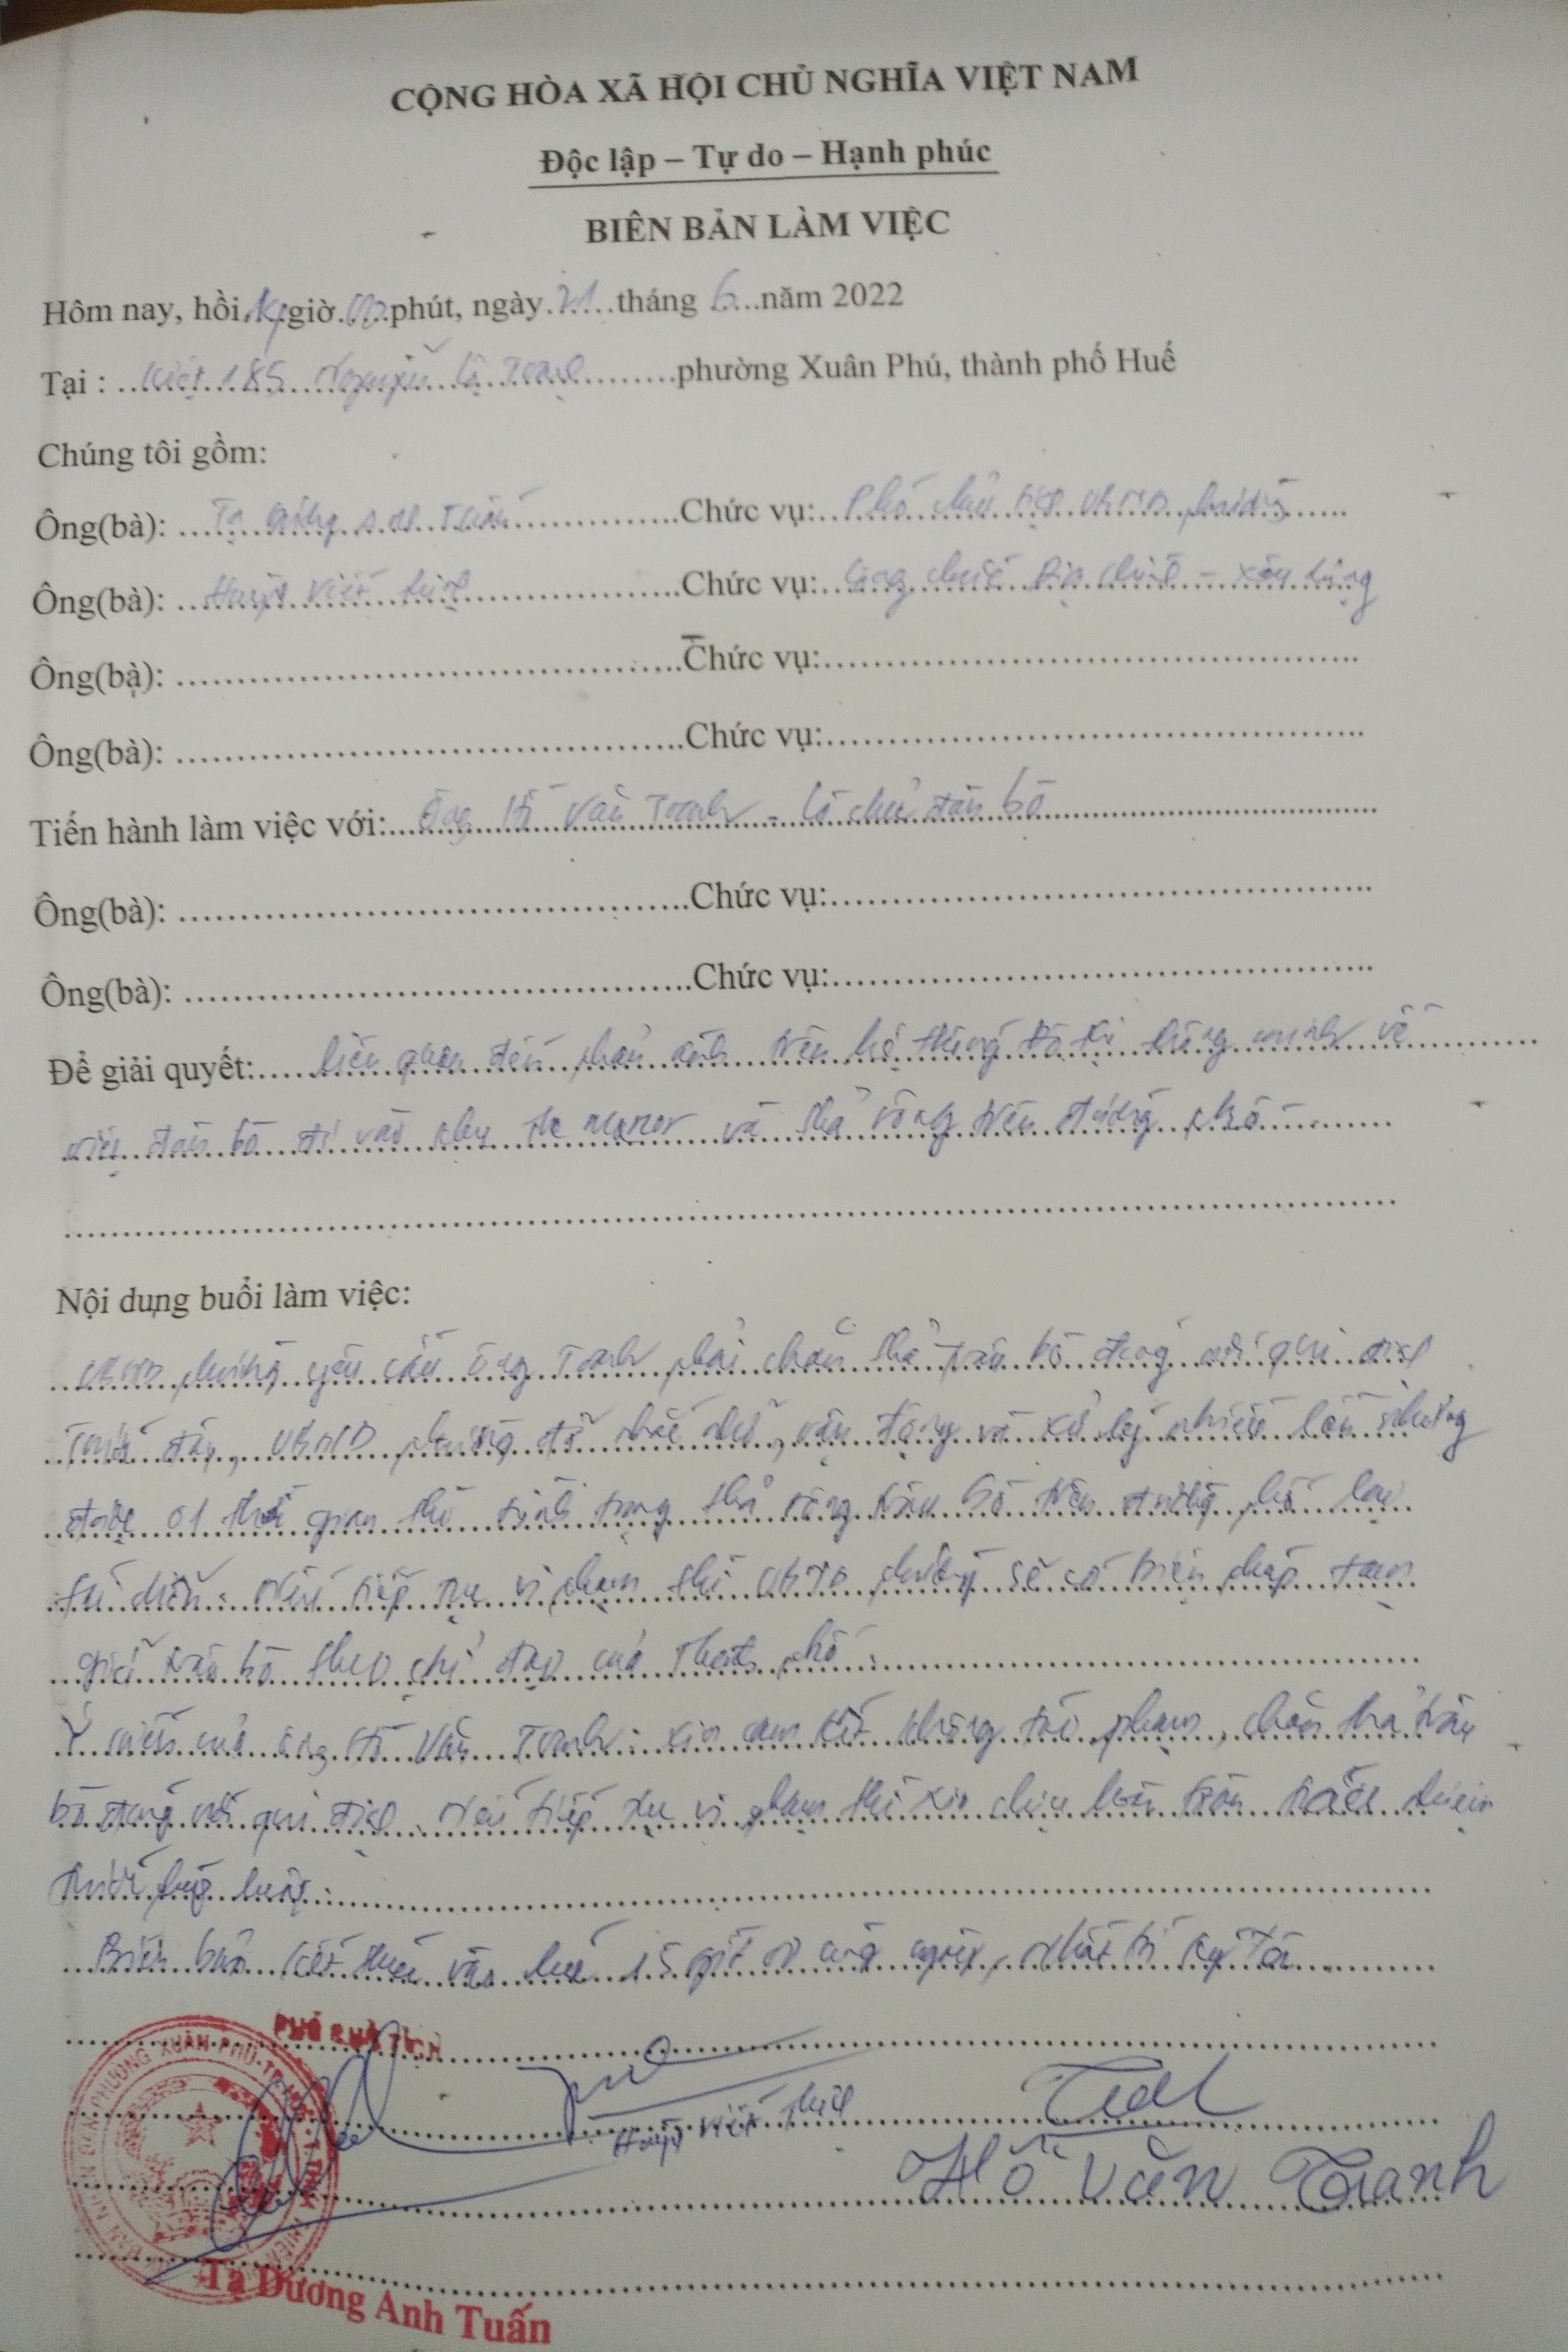 CỘNG HÒA XÃ HỘI CHỦ NGHĨA VIỆT NAM
Độc lập – Tự do – Hạnh phúc
BIÊN BẢN LÀM VIỆC
Hôm nay, hồi 14 giờ 00 phút, ngày 21 tháng 6 năm 2022
Tại : Kiệt 185 Nguyễn Lộ Trạch phường Xuân Phú, thành phố Huế
Chúng tôi gồm:
Ông(bà): Tạ Dương Anh Tuấn Chức vụ: Phó chủ tịch UBND phường
Ông(bà): Huỳnh Viết Chức vụ: Công chức địa chính - xây dựng
Ông(bà): Chức vụ:
Ông(bà): Chức vụ:
Tiến hành làm việc với: Ông Hồ Văn Tranh - là chủ đàn bò
Ông(bà): Chức vụ:
Ông(bà): Chức vụ:
Để giải quyết: liên quan đến phản ánh trên hệ thống đô thị thông minh về
việc đàn bò đi vào khu The manor và thả rông trên đường phố
Nội dung buổi làm việc:
UBND phường yêu cầu ông Tranh phải chăn thả trâu bò đúng nơi qui định
Trước đây, UBND phường đã nhắc nhở, vận động và xử lý nhiều lần nhưng
được 01 thời gian thì tình trạng thả rông trâu bò trên đường phố lại
tái diễn. Nếu tiếp tục vi phạm thì UBND phường sẽ có biện pháp tạm
giữ trâu bò theo chỉ đạo của Thành phố.
Ý kiến của ông Hồ Văn Tranh: xin cam kết không tái phạm, chăn thả trâu
bò đúng nơi qui định. Nếu tiếp tục vi phạm thì xin chịu hoàn toàn trách nhiệm
trước pháp luật.
Biên bản kết thúc vào lúc 15 giờ 00 cùng ngày, nhất trí ký tên
PHÓ CHỦ TỊCH
Huỳnh Viết
Hồ Văn Tranh
Tạ Dương Anh Tuấn